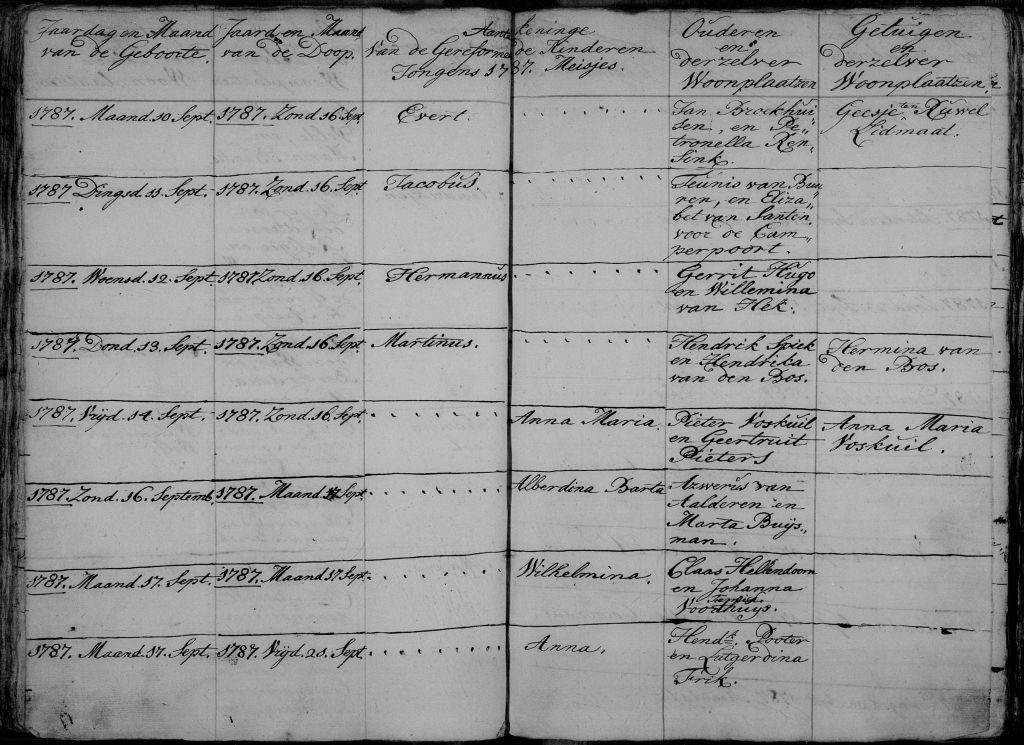 Jaardag en Maand Jaard en Maand Aantekeninge Ouderen Getuigen
van de Geboorte. van de Doop. van de Gereformeerde Kinderen en en
Jongens 1787. Meisjes. derzelver derzelver
Woonplaatzen Woonplaatzen.
1787. Maand 10 Sept. 1787. Zond 16 Sept. Evert. Jan Broekhui„ Geesje ten Kuwel
sen, en Pe„ Lidmaat.
tronella Ren„
sink.
1787 Dingsd. 11. Sept. 1787. Zond. 16. Sept. Jacobus. Teunis van Buu„
ren, en Eliza„
bet van Santen,
voor de Cam„
perpoort.
1787. Woensd. 12. Sept. 1787 Zond. 16. Sept. Hermannus. Gerrit Hugo
en Willemina
van Hek.
1787. Dond. 13. Sept. 1787. Zond. 16. Sept. Martinus. Hendrik Spiek Hermina van
en Hendrika den Bos.
van den Bos.
1787. Vrijd 14. Sept. 1787. Zond 16. Sept. Anna Maria. Pieter Voskuil Anna Maria
en Geertruit Voskuil.
Pieters
1787. Zond. 16. Septemb. 1787. Maand 17. Sept. Alberdina Barta Azwerus van
Aalderen en
Marta Buijs„
man.
1787. Maand. 17. Sept. 1787. Maand 17. Sept. Wilhelmina. Claas Hellendoorn
en Johanna
Voorhuijs.
1787. Maand. 17. Sept. 1787. Vrijd 21. Sept. Anna. Hendk. Pooter
en Lutgerdina
Frik.